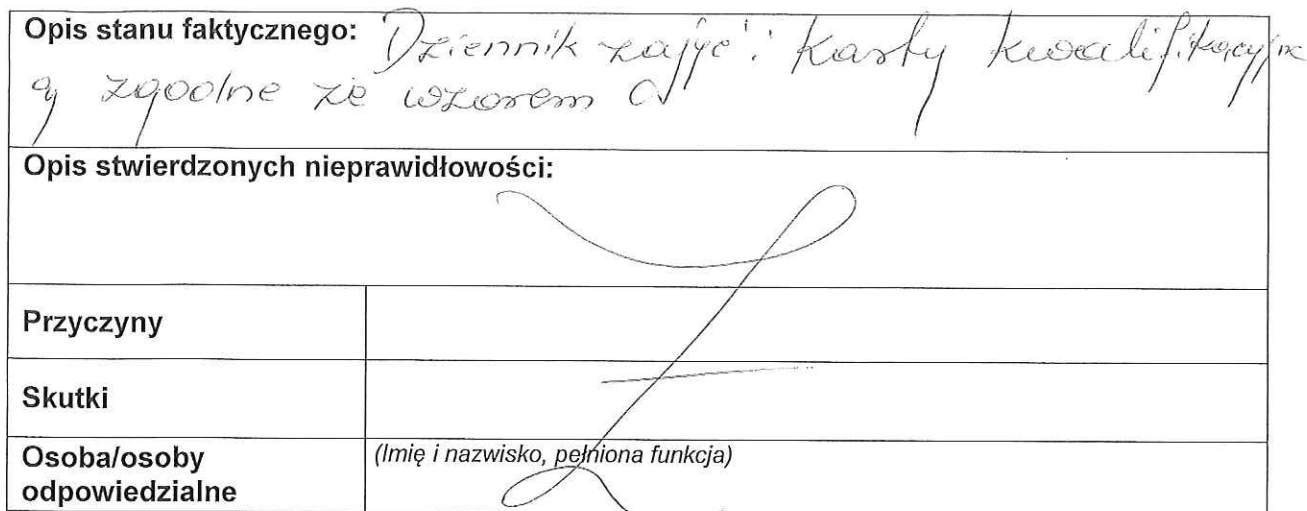 Opis stanu faktycznego: Dziennik zajęć i karty kwalifikacyjne
są zgodne ze wzorem
Opis stwierdzonych nieprawidłowości:
Przyczyny
Skutki
Osoba/osoby odpowiedzialne
(Imię i nazwisko, pełniona funkcja)